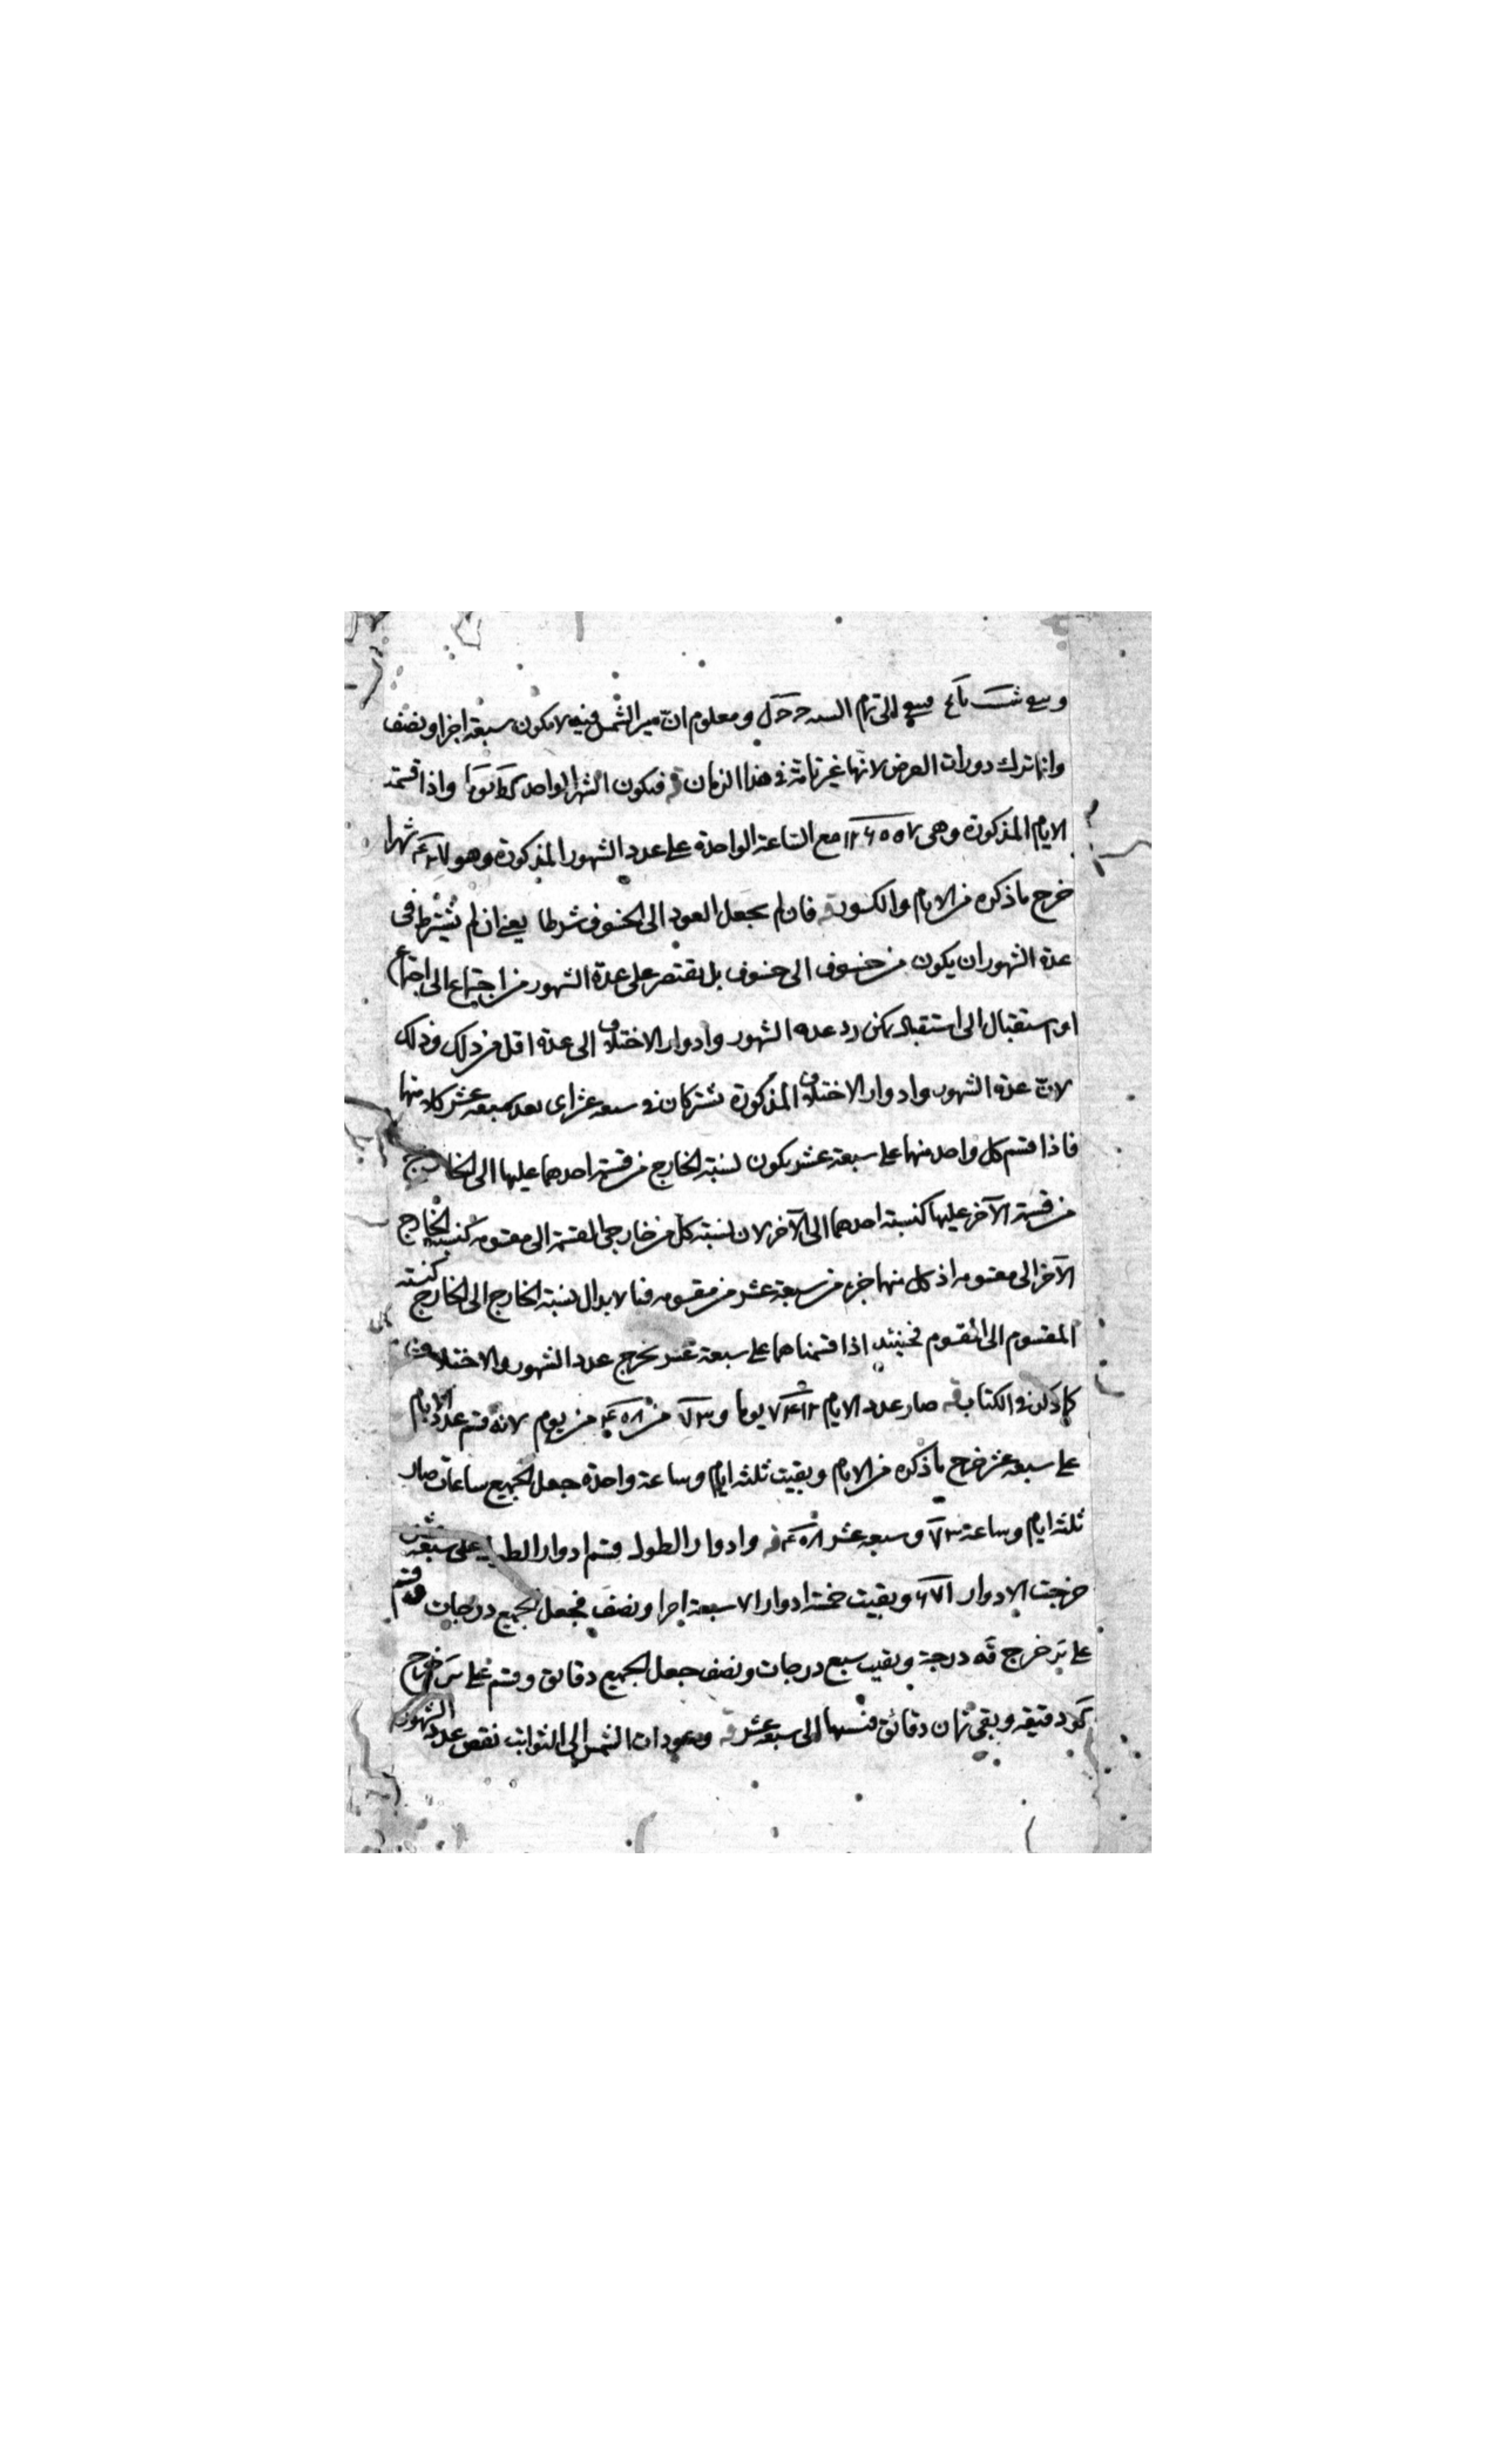 الى تمام السنة ومعلوم ان مسير الشمس فيه لا يكون سبعة اجزا ونصف
وانما ترك دورات العرض لانها غير تامة فى هذا الزمان فيكون الشهر الواحد واذا قسمت
الايام المذكورة وهى ١٢٦٠٠٧ مع الساعة الواحدة على عدد الشهور المذكورة وهو ٤٢٦٧ شهرا
خرج ما ذكره من الايام والكسور فان لم يجعل العود الى الخسوف شرطا يعنى ان لم يشترط فى
عدة الشهور ان يكون من خسوف الى خسوف بل يقتصر على عدة الشهور من اجتماع الى اجتماع
او استقبال الى استقبال يمكن رد عده الشهور وادوار الاختلاف الى عدة اقل من ذلك وذلك
لان عدة الشهور وادوار الاختلاف المذكورة تشتركان فى سبعة عشر اى يعد سبعة عشر كلا منها
فاذا قسم كل واحد منهما على سبعة عشر يكون نسبة الخارج من قسمة احدهما عليها الى الخارج
من قسمة الآخر عليها كنسبة احدهما الى الآخر لان نسبة كل من خارجى القسمة الى مقسومه كنسبة الخارج
الآخر الى مقسومه اذ كل منهما جزء من سبعة عشر من مقسومه فبالابدال نسبة الخارج الى الخارج كنسبة
المقسوم الى المقسوم فحينئذ اذا قسمناهما على سبعة عشر يخرج عدد الشهور والاختلاف
كما ذكر فى الكتاب صار عدد الايام ٧٤١٢ يوما و٧٣ من ٤٠٨ من يوم لانه قسم عدد الايام
على سبعة عشر خرج ما ذكره من الايام وبقيت ثلثة ايام وساعة واحدة جعل الجميع ساعات صار
ثلثة ايام وساعة ٧٣ وسبعة عشر ٤٠٨ وادوار الطول قسم ادوار الطول على سبعة عشر
خرجت الادوار ٢٧١ وبقيت خمسة ادوار الا سبعة اجزا ونصف فجعل الجميع درجات وقسم
على يز خرج قه درجة وبقيت سبع درجات ونصف جعل الجميع دقائق وقسم على يز خرج
كو دقيقه وبقى ثمان دقائق فنسبها الى سبعة عشر وعودات الشمس الى الثوابت نقص عدد الشهور